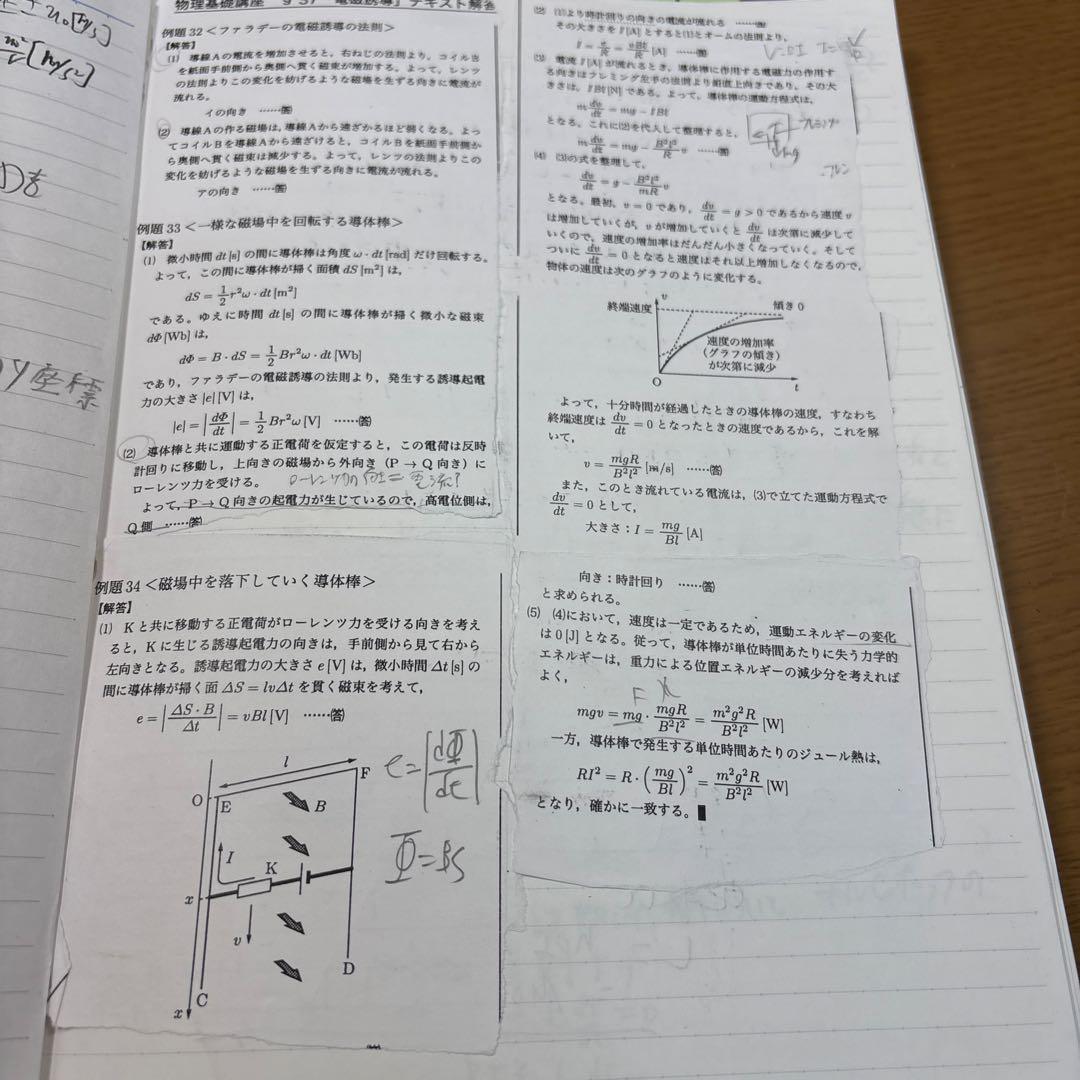 物理基礎講座 §37 「電磁誘導」テキスト解答
例題 32＜ファラデーの電磁誘導の法則＞
【解答】
(1) 導線Aの電流を増加させると，右ねじの法則より，コイルBを紙面手前側から奥側へ貫く磁束が増加する。よって，レンツ
の法則よりこの変化を妨げるような磁場を生ずる向きに電流が
流れる。
イの向き ……答
(2) 導線Aの作る磁場は，導線Aから遠ざかるほど弱くなる。よっ
てコイルBを導線Aから遠ざけると，コイルBを紙面手前側か
ら奥側へ貫く磁束は減少する。よって，レンツの法則よりこの
変化を妨げるような磁場を生ずる向きに電流が流れる。
アの向き ……答
例題 33＜一様な磁場中を回転する導体棒＞
【解答】
(1) 微小時間 dt [s] の間に導体棒は角度 ω・dt [rad] だけ回転する。
よって，この間に導体棒が掃く面積 dS [m²] は，
dS = 1/2 r²ω・dt [m²]
である。ゆえに時間 dt [s] の間に導体棒が掃く微小な磁束
dΦ [Wb] は，
dΦ = B・dS = 1/2 Br²ω・dt [Wb]
であり，ファラデーの電磁誘導の法則より，発生する誘導起電
力の大きさ |e| [V] は，
|e| = |dΦ/dt| = 1/2 Br²ω [V] ……答
(2) 導体棒と共に運動する正電荷を仮定すると，この電荷は反時
計回りに移動し，上向きの磁場から外向き（P → Q 向き）に
ローレンツ力を受ける。
ローレンツ力の向き＝電流?
よって，P → Q 向きの起電力が生じているので，高電位側は，
Q側 ……答
例題 34＜磁場中を落下していく導体棒＞
【解答】
(1) K と共に移動する正電荷がローレンツ力を受ける向きを考え
ると，K に生じる誘導起電力の向きは，手前側から見て右から
左向きとなる。誘導起電力の大きさ e [V] は，微小時間 Δt [s] の
間に導体棒が掃く面 ΔS = lvΔt を貫く磁束を考えて，
e = |ΔS・B/Δt| = vBl [V] ……答
l
F
O
E
B
I
K
x
v
D
C
x
e = |dΦ/dt|
Φ = BS
(2) (1)より時計回りの向きの電流が流れる ……答
その大きさを I [A] とすると(1)とオームの法則より，
I = e/R = vBl/R [A] ……答
(3) 電流 I [A] が流れるとき，導体棒に作用する電磁力の作用す
る向きはフレミング左手の法則より鉛直上向きであり，その大
きさは，IBl [N] である。よって，導体棒の運動方程式は，
m dv/dt = mg − IBl
となる。これに(2)を代入して整理すると，
m dv/dt = mg − B²l²/R v ……答
mg
(4) (3)の式を整理して，
dv/dt = g − B²l²/mR v
となる。最初，v = 0 であり，dv/dt = g > 0 であるから速度 v
は増加していくが，v が増加していくと dv/dt は次第に減少して
いくので，速度の増加率はだんだん小さくなっていく。そして
ついに dv/dt = 0 となると速度はそれ以上増加しなくなるので，
物体の速度は次のグラフのように変化する。
v
終端速度
傾き 0
速度の増加率
（グラフの傾き）
が次第に減少
O
t
よって，十分時間が経過したときの導体棒の速度，すなわち
終端速度は dv/dt = 0 となったときの速度であるから，これを解
いて，
v = mgR/B²l² [m/s] ……答
また，このとき流れている電流は，(3)で立てた運動方程式で
dv/dt = 0 として，
大きさ：I = mg/Bl [A]
向き：時計回り ……答
と求められる。
(5) (4)において，速度は一定であるため，運動エネルギーの変化
は 0 [J] となる。従って，導体棒が単位時間あたりに失う力学的
エネルギーは，重力による位置エネルギーの減少分を考えれば
よく，
F
mgv = mg・mgR/B²l² = m²g²R/B²l² [W]
一方，導体棒で発生する単位時間あたりのジュール熱は，
RI² = R・(mg/Bl)² = m²g²R/B²l² [W]
となり，確かに一致する。